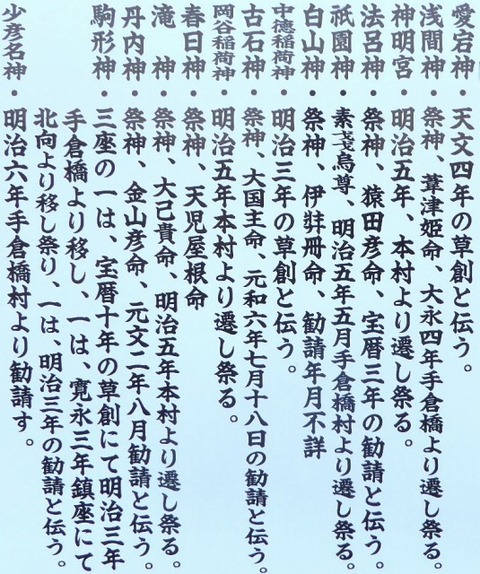 愛宕神・天文四年の草創と伝う。
浅間神・祭神、葦津姫命、大永四年手倉橋より遷し祭る。
神明宮・明治五年、本村より遷し祭る。
法呂神・祭神、猿田彦命、宝暦三年の勧請と伝う。
祇園神・素戔烏尊、明治五年五月手倉橋村より遷し祭る。
白山神・祭神、伊弉冊命、勧請年月不詳
中徳稲荷神・明治三年の草創と伝う。
古石神・祭神、大国主命、元和六年七月十八日の勧請と伝う。
岡谷稲荷神・明治五年本村より遷し祭る。
春日神・祭神、天児屋根命
滝　神・祭神、大己貴命、明治五年本村より遷し祭る。
丹内神・祭神、金山彦命、元文二年八月勧請と伝う。
駒形神・三座の一は、宝暦十年の草創にて明治三年
手倉橋より移し、一は、寛永三年鎮座にて
北向より移し祭り、一は、明治三年の勧請と伝う。
少彦名神・明治六年手倉橋村より勧請す。